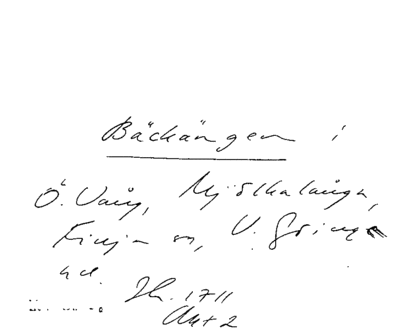 Bäckängen i
Ö. Vång, Mjölkalånga,
Finja sn, V. Göinge
hd. Jh. 1711
Akt 2